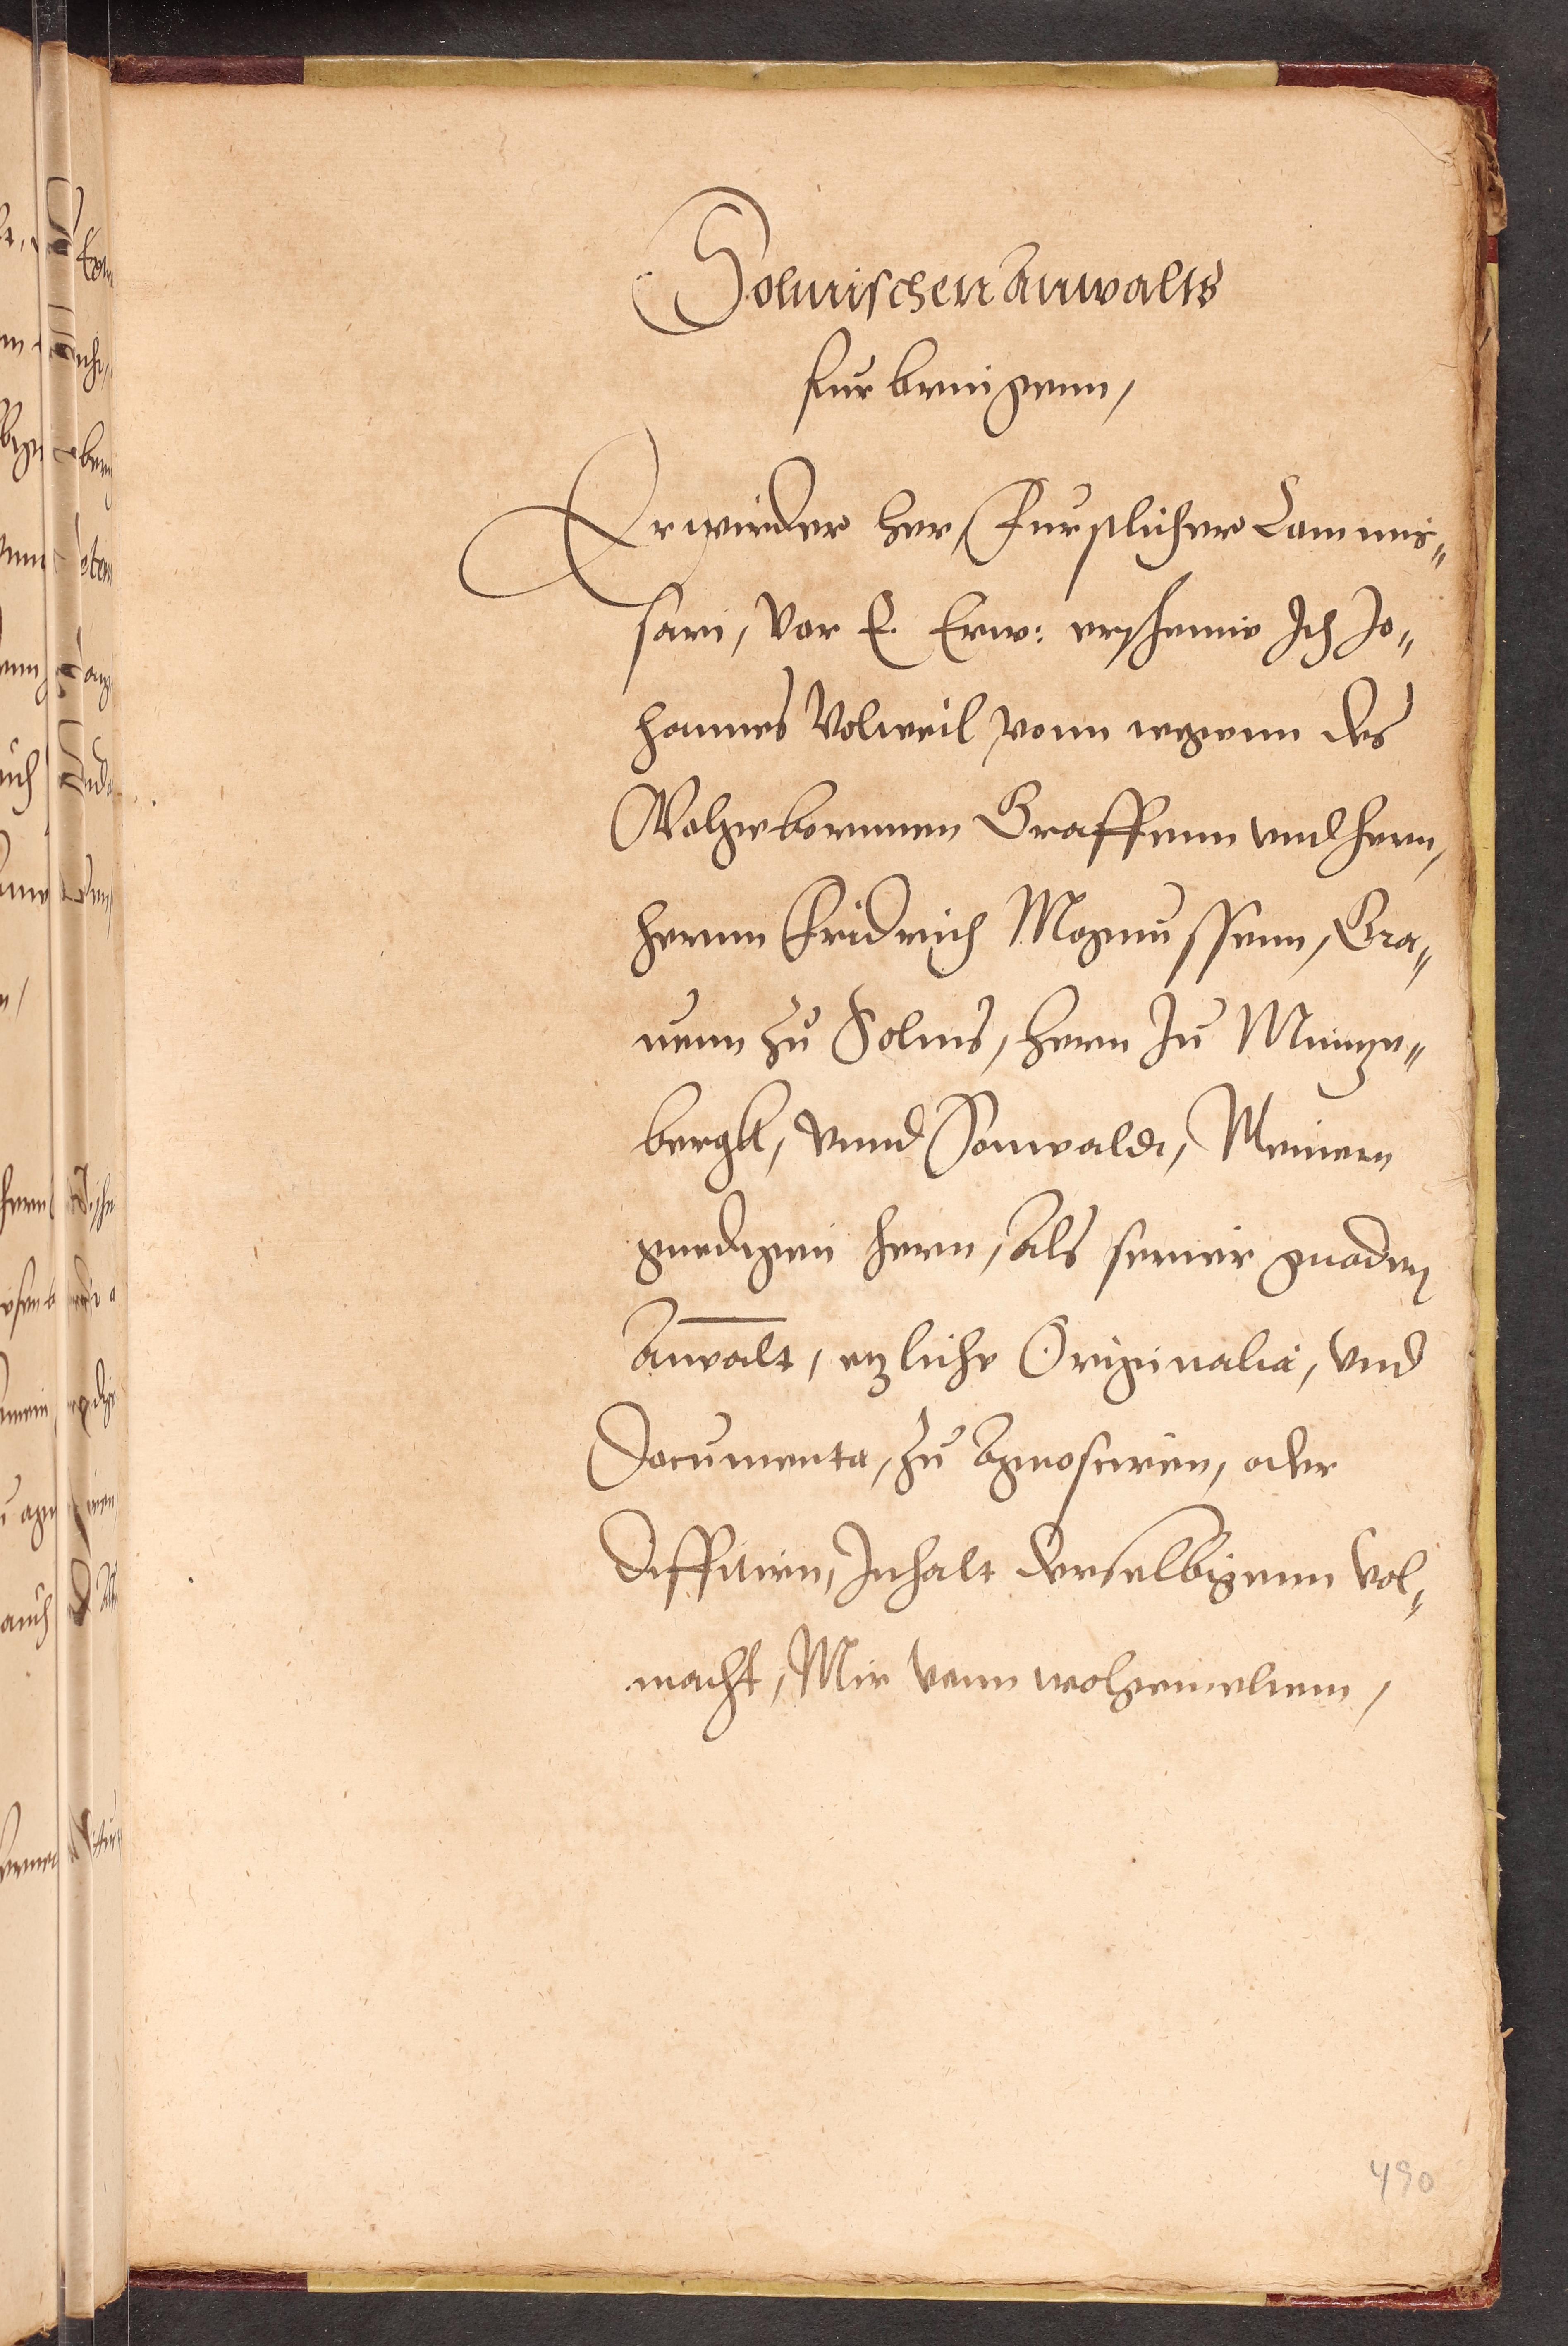 Solmischen Anwalts
furbringenn,
Erwirder her, Furstlicher Commis„
sari, Vor E. Erw: erscheine Ich Jo„
hannes Volweil, vonn wegenn des
Wolgebornnen Graffenn vnd hern,
hernn Fridrich Magnussenn, Gra„
uenn zu Solms, hern zu Mintze„
bergk, vnnd Sonwaldt, Meinem
gnedigen hern, Als seiner gnaden
Anwalt, etzliche Originalia, vnd
Documenta, zu Agnosciren, oder
diffitirn, Inhalt derselbigenn Vol„
macht, Mir vonn wolgemeltem,
490